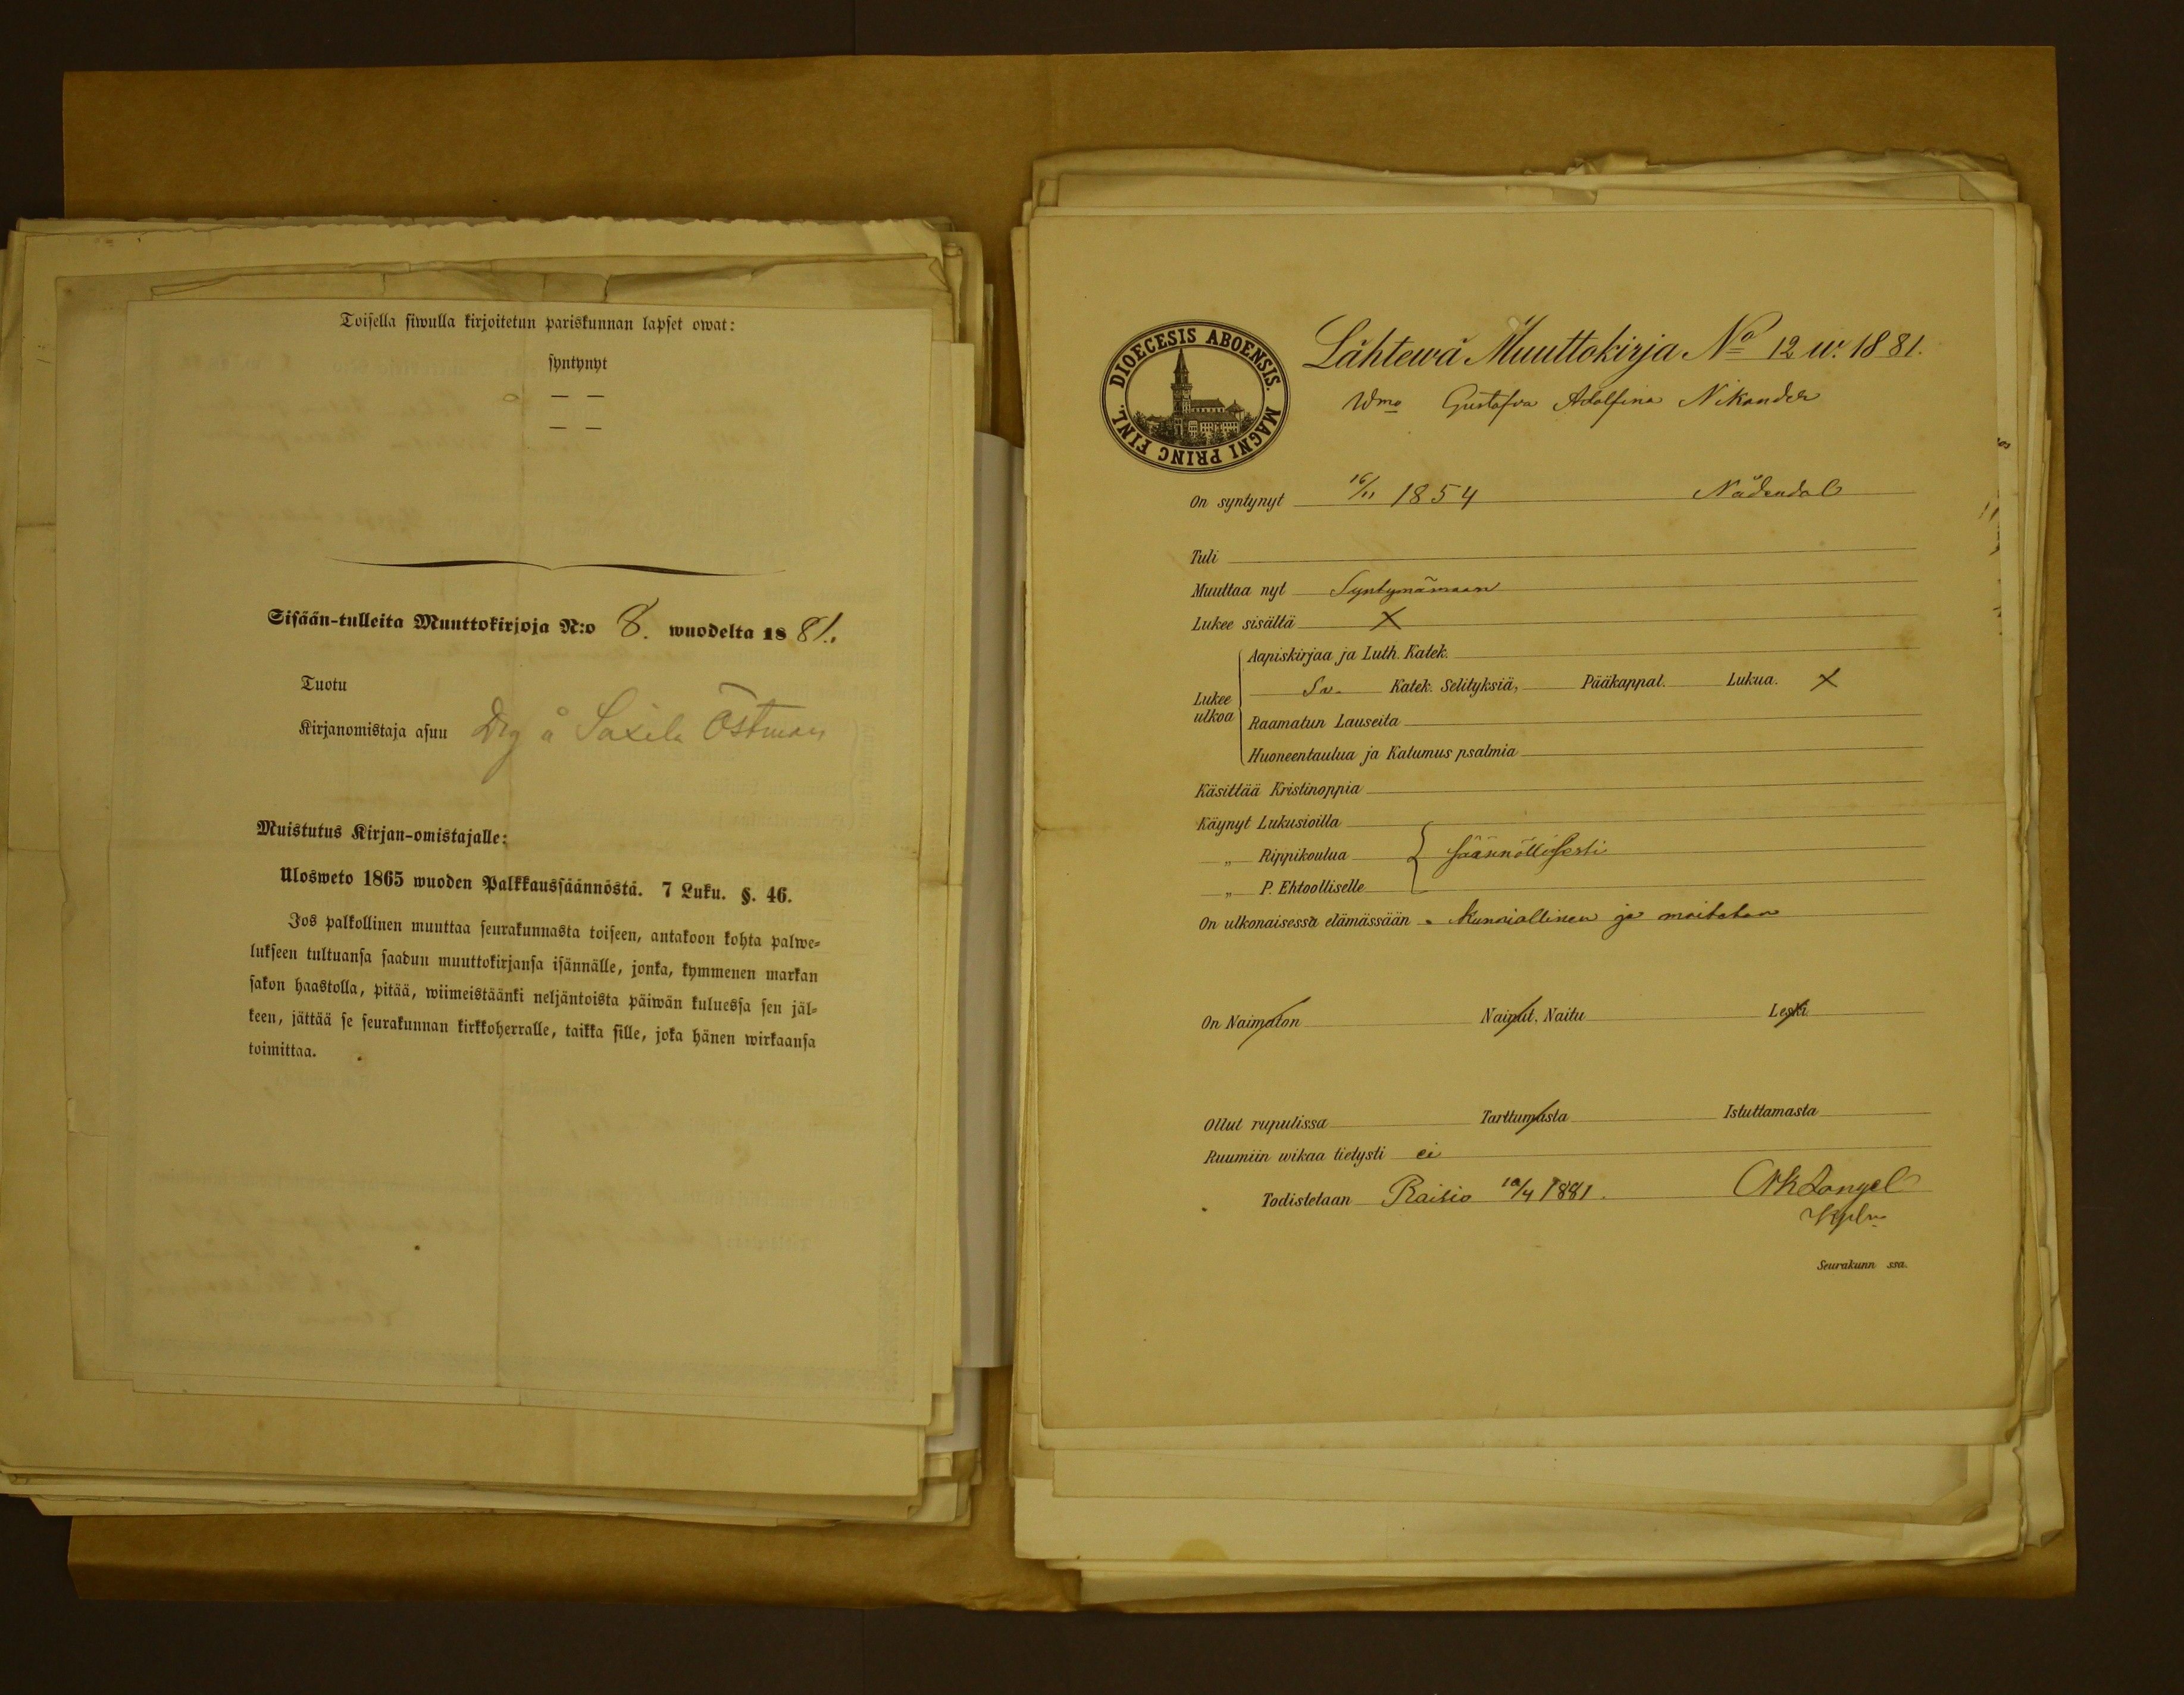 Toisella siwulla kirjoitetun pariskunnan lapset owat:
syntynyt
— —
— —
Sisään-tulleita Muuttokirjoja N:o 8. wuodelta 1881.
Tuotu
Kirjanomistaja asuu Drg å Saxila Östman
Muistutus Kirjan-omistajalle:
Ulosweto 1865 wuoden Palkkaussäännöstä. 7 Luku. §. 46.
Jos palkollinen muuttaa seurakunnasta toiseen, antakoon kohta palwe-
lukseen tultuansa saadun muuttokirjansa isännälle, jonka, kymmenen markan
sakon haastolla, pitää, wiimeistäänki neljäntoista päiwän kuluessa sen jäl-
keen, jättää se seurakunnan kirkkoherralle, taikka sille, joka hänen wirkaansa
toimittaa.
DIOECESIS ABOENSIS. MAGNI PRINC FINL.
Lähtewä Muuttokirja No 12 w. 1881.
Wmo Gustafva Adolfina Nikander
On syntynyt 16/11 1854 Nådendal
Tuli
Muuttaa nyt Syntymämaan
Lukee sisältä X
Lukee ulkoa
Aapiskirjaa ja Luth. Katek.
Sv. Katek. Selityksiä, Pääkappal. Lukua. X
Raamatun Lauseita
Huoneentaulua ja Katumus psalmia
Käsittää Kristinoppia
Käynyt Lukusioilla
„ Rippikoulua säännöllisesti
„ P. Ehtoolliselle
On ulkonaisessa elämässään Kunniallinen ja moiteton
On Naimaton Nainut. Naitu Leski
Ollut rupulissa Tarttumasta Istuttamasta
Ruumiin wikaa tietysti ei
Todistetaan Raisio 10/4 1881.
Kpln
Seurakunn ssa.